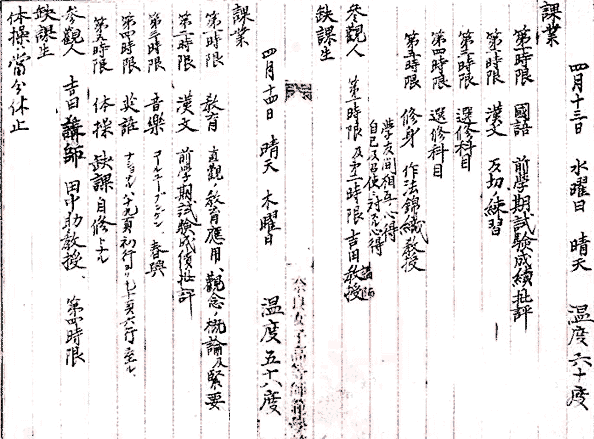 四月十三日 水曜日 晴天 温度六十度
課業
第一時限 國語 前学期試験成績批評
第二時限 漢文 反切ノ練習
第三時限 選修科目
第四時限 選修科目
第五時限 修身 作法錦織教授
学友間相互心得
自己及召使ニ対スル心得
参觀人 第一時限及第二時限 吉田講師教授
缺課生
奈良女子高等師範学校
四月十四日 晴天 木曜日 温度五十八度
課業
第一時限 教育 直觀ノ教育應用、觀念ノ概論及緊要
第二時限 漢文 前學期試験成績批評
第三時限 音樂 コールユーブンゲン 春興
第四時限 英語 ナショナル 八十九頁初行ヨリ九十頁六行ニ至ル
第五時限 体操 缺課自修トナル
参觀人 吉田講師 田中助教授 第四時限
缺課生
体操當分休止